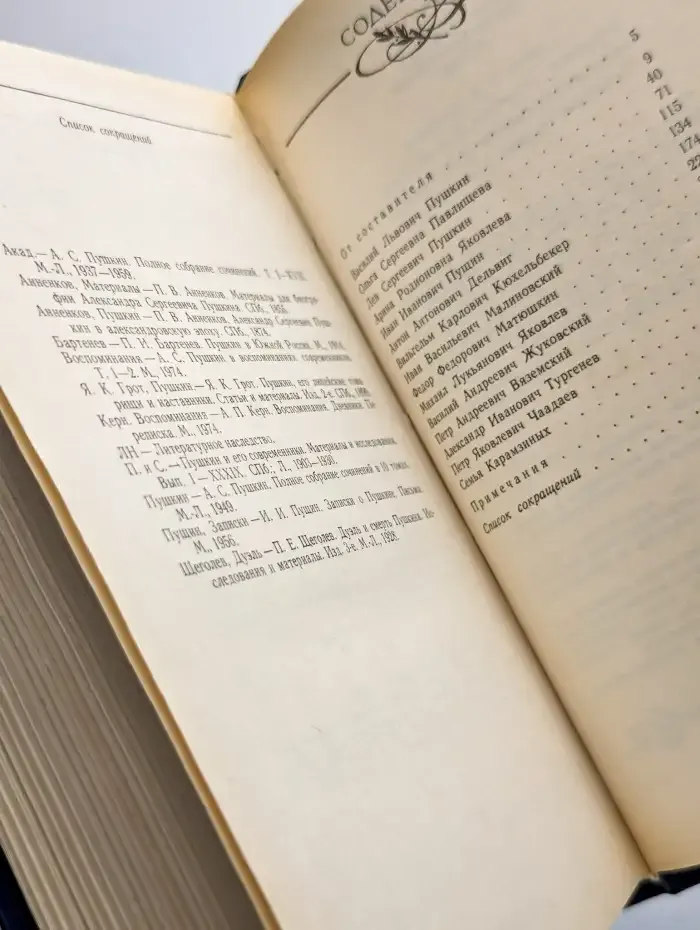 Список сокращений
Акад.— А. С. Пушкин. Полное собрание сочинений. Т. I—XVII.
М.-Л., 1937—1959.
Анненков, Материалы — П. В. Анненков. Материалы для биогра-
фии Александра Сергеевича Пушкина. СПб., 1855.
Анненков, Пушкин — П. В. Анненков. Александр Сергеевич Пуш-
кин в александровскую эпоху. СПб., 1874.
Бартенев — П. И. Бартенев. Пушкин в Южной России. М., 1914.
Воспоминания — А. С. Пушкин в воспоминаниях современников.
Т. 1—2. М., 1974.
Я. К. Грот, Пушкин — Я. К. Грот. Пушкин, его лицейские това-
рищи и наставники. Статьи и материалы. Изд. 2-е. СПб., 1899.
Керн. Воспоминания — А. П. Керн. Воспоминания. Дневники. Пе-
реписка. М., 1974.
ЛН — Литературное наследство.
П. и С.— Пушкин и его современники. Материалы и исследования.
Вып. I — XXXIX. СПб.; Л., 1901—1930.
Пушкин — А. С. Пушкин. Полное собрание сочинений в 10 томах.
М.-Л., 1949.
Пущин, Записки — И. И. Пущин. Записки о Пушкине. Письма.
М., 1956.
Щеголев, Дуэль — П. Е. Щеголев. Дуэль и смерть Пушкина. Ис-
следования и материалы. Изд. 3-е. М.-Л., 1928.
СОДЕ
От составителя 5
Василий Львович Пушкин 9
Ольга Сергеевна Павлищева 40
Лев Сергеевич Пушкин 71
Арина Родионовна Яковлева 115
Иван Иванович Пущин 134
Антон Антонович Дельвиг 174
Вильгельм Карлович Кюхельбекер
Иван Васильевич Малиновский
Федор Федорович Матюшкин
Михаил Лукьянович Яковлев
Василий Андреевич Жуковский
Петр Андреевич Вяземский
Александр Иванович Тургенев
Петр Яковлевич Чаадаев
Семья Карамзиных
Примечания
Список сокращений